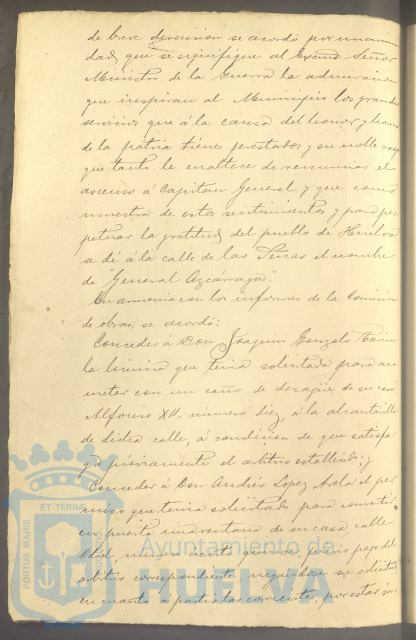 de breve discusion se acordó por unanimi
dad, que se signifique al Excmo Señor
Ministro de la Guerra la admiracion
que inspiran al Municipio los grandes
servicios que á la causa del honor y
de la patria tiene prestados y su noble rasgo
que tanto le enaltece de renunciar el
ascenso á Capitan General y que como
muestra de estos sentimientos y para per
petuar la gratitud del pueblo de Huelva
se dé á la calle de las Peñas el nombre
de "General Azcárraga".
En armonia con los informes de la Comision
de obras, se acordó:
Conceder á Don Joaquin Gonzalo Tarin
la licencia que tenia solicitada para aco
meter con un caño de desagüe de su casa
Alfonso XII, número diez, á la alcantarilla
de dicha calle, á condicion de que satisfa
ga préviamente el arbitrio establecido; y
Conceder á Don Andrés Lopez el per
miso que tenia solicitado para convertir
en puerta una ventana de su casa calle
número ciento quince, prévio pago del
arbitrio correspondiente negándose su solicitud
en cuanto á por estar
PORTUS MARIS
ET TERRAE
Ayuntamiento de
HUELVA